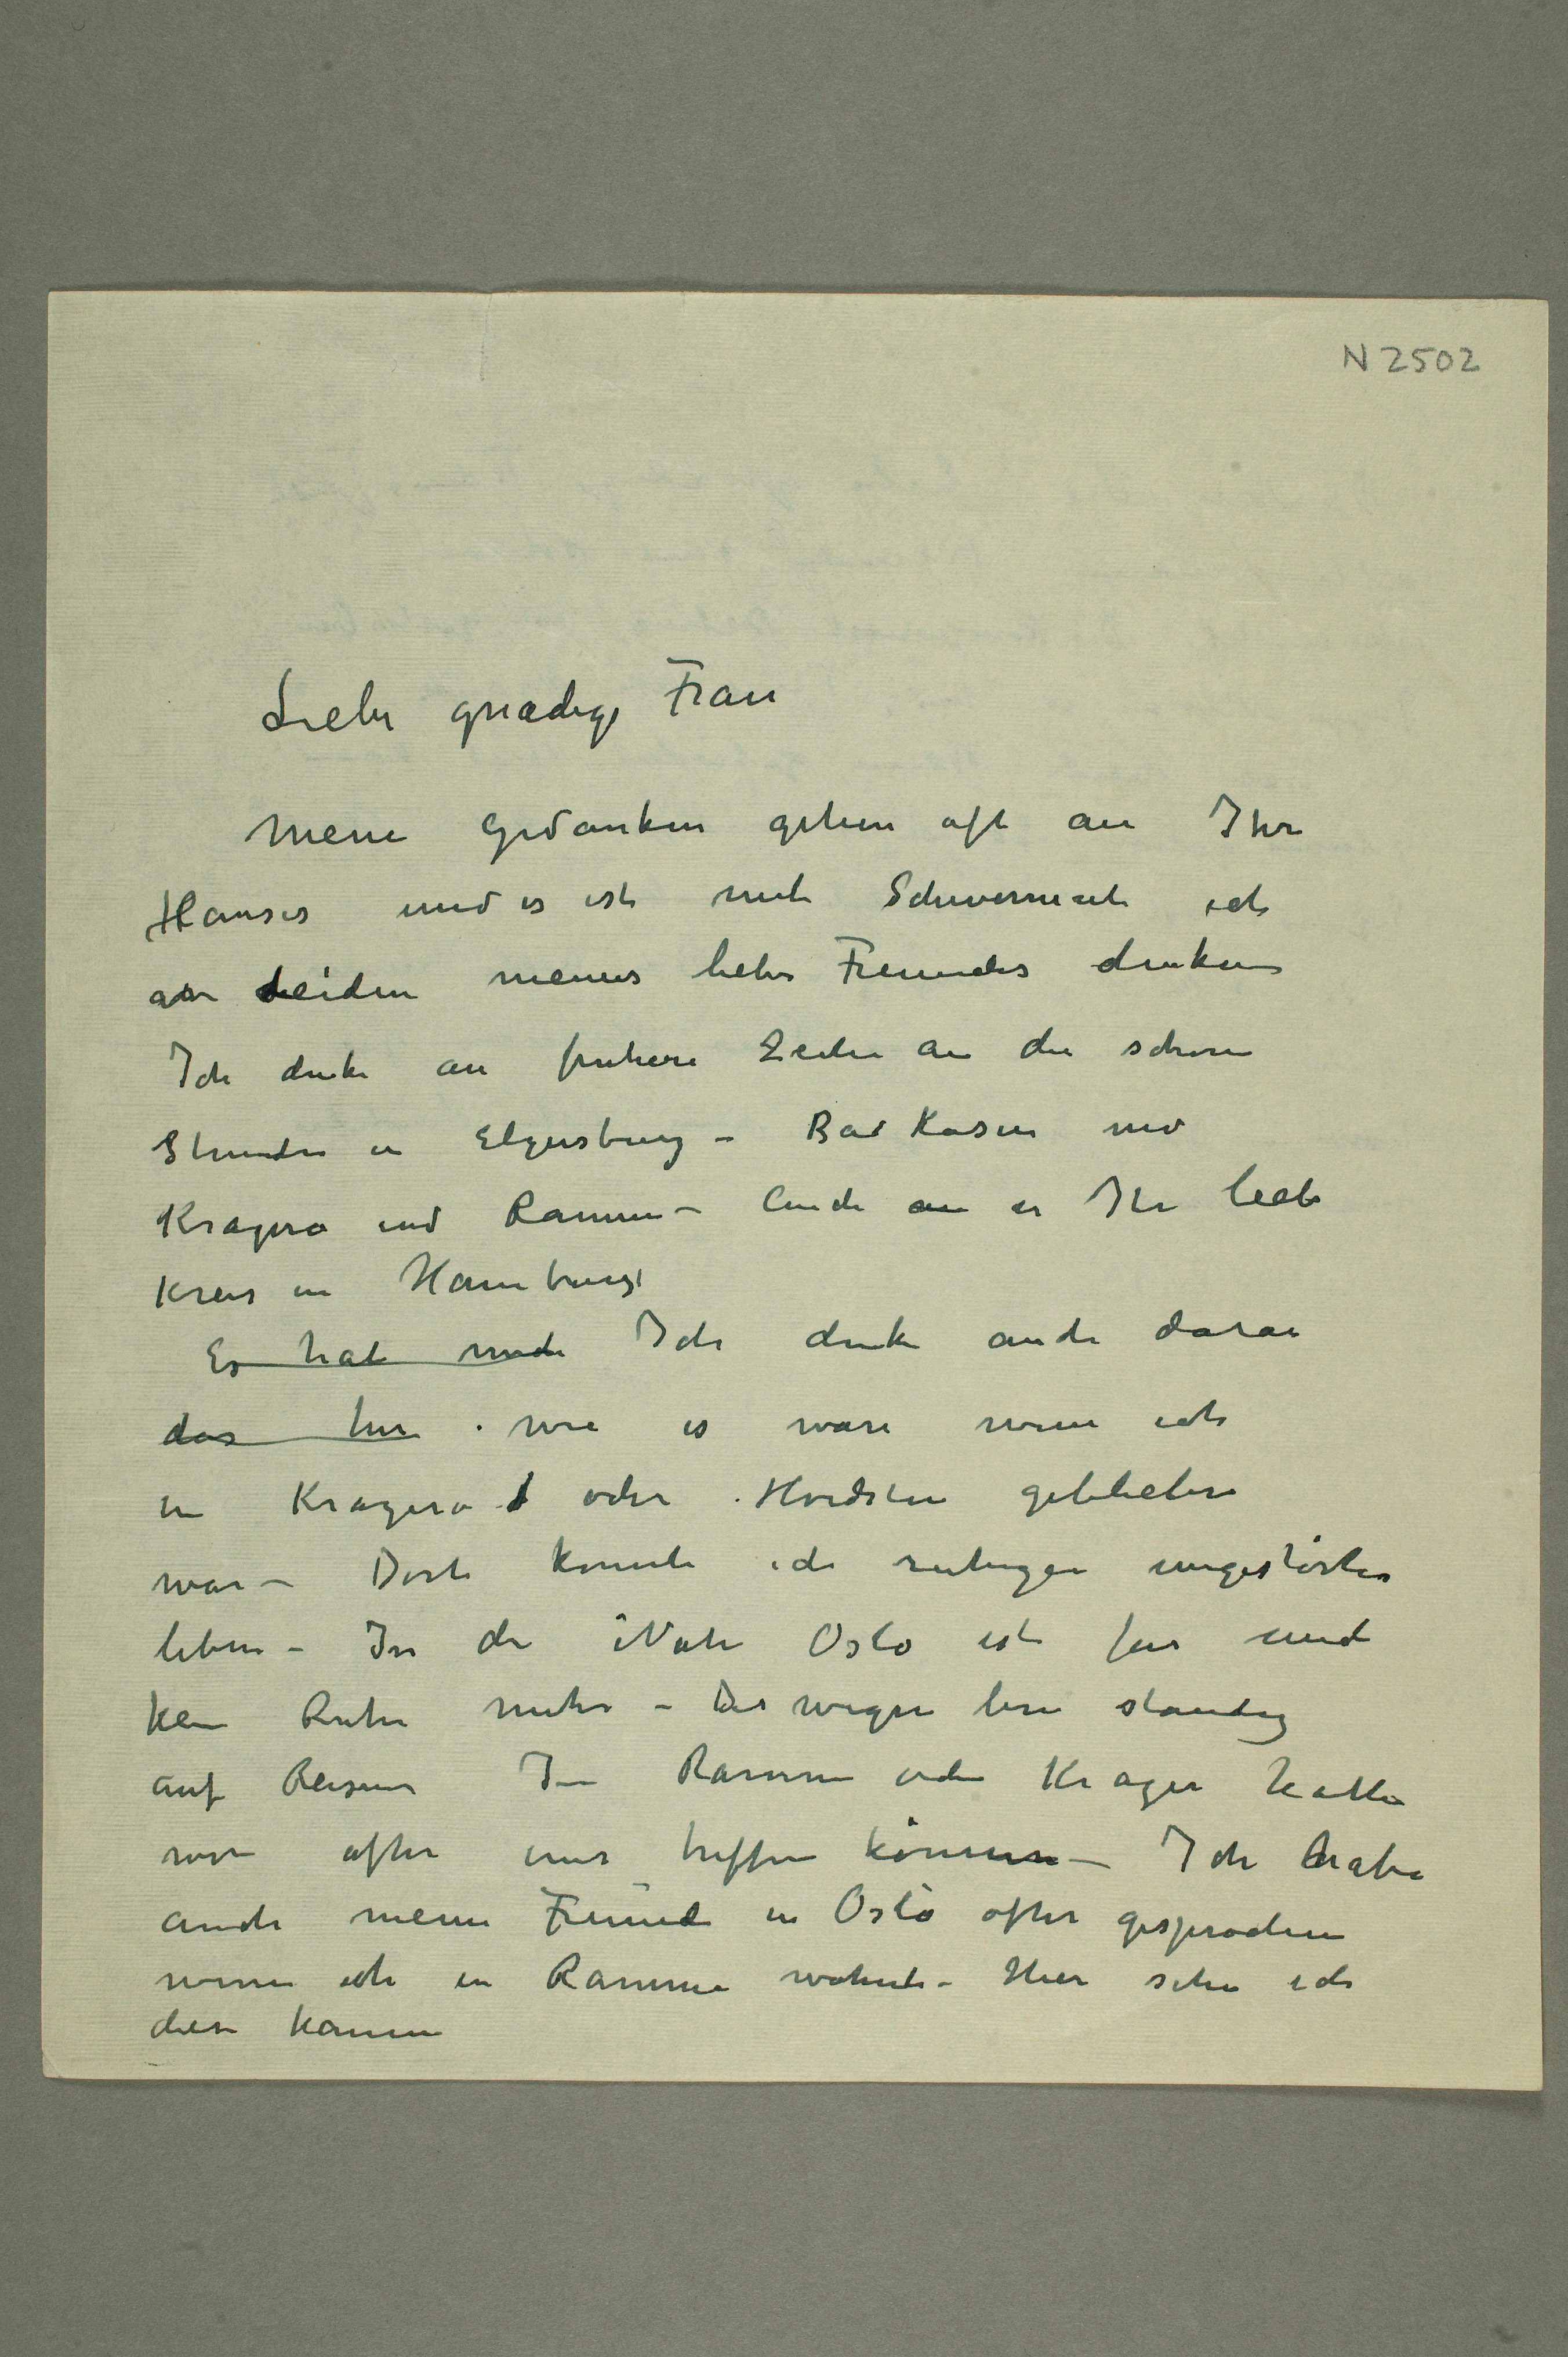 N 2502
Liebe gnædige Frau
Meine Gedanken gehen oft an Ihr
Hauses und es ist mit Schwermut ich
an Leiden meines lieben Freundes denken
Ich denke an fruhere Zeiten an die schonen
Stunden in Elgersburg – Bad Kosen und
Kragerø und Ramme – Auch an Ihr liebe
Kreis in Hamburg
Es hat mich Ich denke auch daran
das hier wie es ware wenn ich
in Kragerø oder Hvidsten geblieben
war – Dort konnte ich ruhiger ungestörter
leben – In der Nähe Oslo ist fur mich
kein Ruhe mehr – Deswegen bin standig
auf Reisen In Ramme oder Krager hatten
wir ofter uns treffen können – Ich habe
auch meine Freunde in Oslo ofter gesprochen
wenn ich in Ramme wohnte – Hier sehe ich
diese kaum